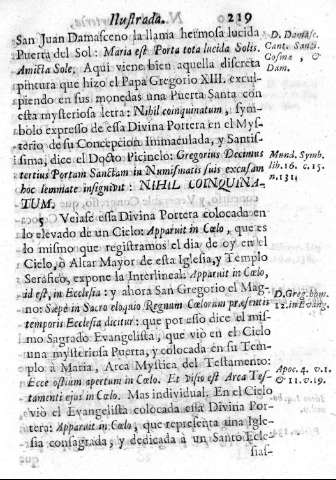 Ilustrada. 219
San Juan Damasceno la llama hermosa lucida
Puerta del Sol: Maria est Porta tota lucida Solis.
Amicta Sole. Aqui viene bien aquella discreta
pintura que hizo el Papa Gregorio XIII. escul-
piendo en sus monedas una Puerta Santa con
esta mysteriosa letra: Nihil coinquinatum, sym-
bolo expresso de essa Divina Portera en el Mys-
terio de su Concepcion Immaculada, y Santis-
sima, dice el Docto Picinelo: Gregorius Decimus
tertius Portam Sanctam in Numismatis suis excusam
hoc lemmate insignivit: NIHIL COINQUINA-
TUM.
5 Veiase essa Divina Portera colocada en
lo elevado de un Cielo: Apparuit in Cœlo, que es
lo mismo que registramos el dia de oy en el
Cielo, ò Altar Mayor de esta Iglesia, y Templo
Serafico, expone la Interlineal: Apparuit in Cœlo,
id est, in Ecclesia: y ahora San Gregorio el Mag-
no: Sæpè in Sacro eloquio Regnum Cœlorum præsentis
temporis Ecclesia dicitur: que por esso dice el mis-
mo Sagrado Evangelista, que viò en el Cielo
una mysteriosa Puerta, y colocada en su Tem-
plo à Maria, Arca Mystica del Testamento:
Ecce ostium apertum in Cœlo. Et visio est Arca Tes-
tamenti ejus in Cœlo. Mas individual. En el Cielo
viò el Evangelista colocada essa Divina Por-
tera: Apparuit in Cœlo, que representa una Igle-
sia consagrada, y dedicada à un Santo Ecle-
sias-
D. Damasc.
Cant. Sanct.
Cosma, &
Dam.
Mund. Symb.
lib. 16. c. 15.
n. 131.
D. Greg. hom.
12. in Evang.
Apoc. 4. v. 1.
& 11. v. 19.